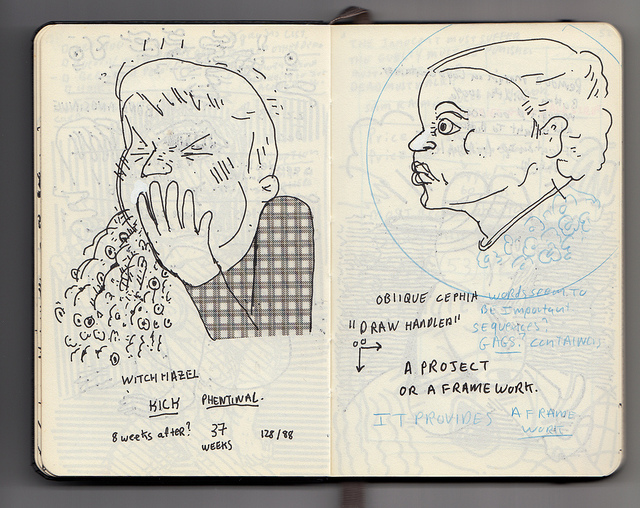 WITCH HAZEL
KICK PHENTINAL.
8 weeks after? 37 WEEKS 128/88
OBLIQUE CEPHIA
"DRAW HANDLER"
A PROJECT
OR A FRAMEWORK.
WORDS SEEM TO
BE Important
SEQUENCES?
GAGS? CONTAINING
IT PROVIDES A FRAME
WORK